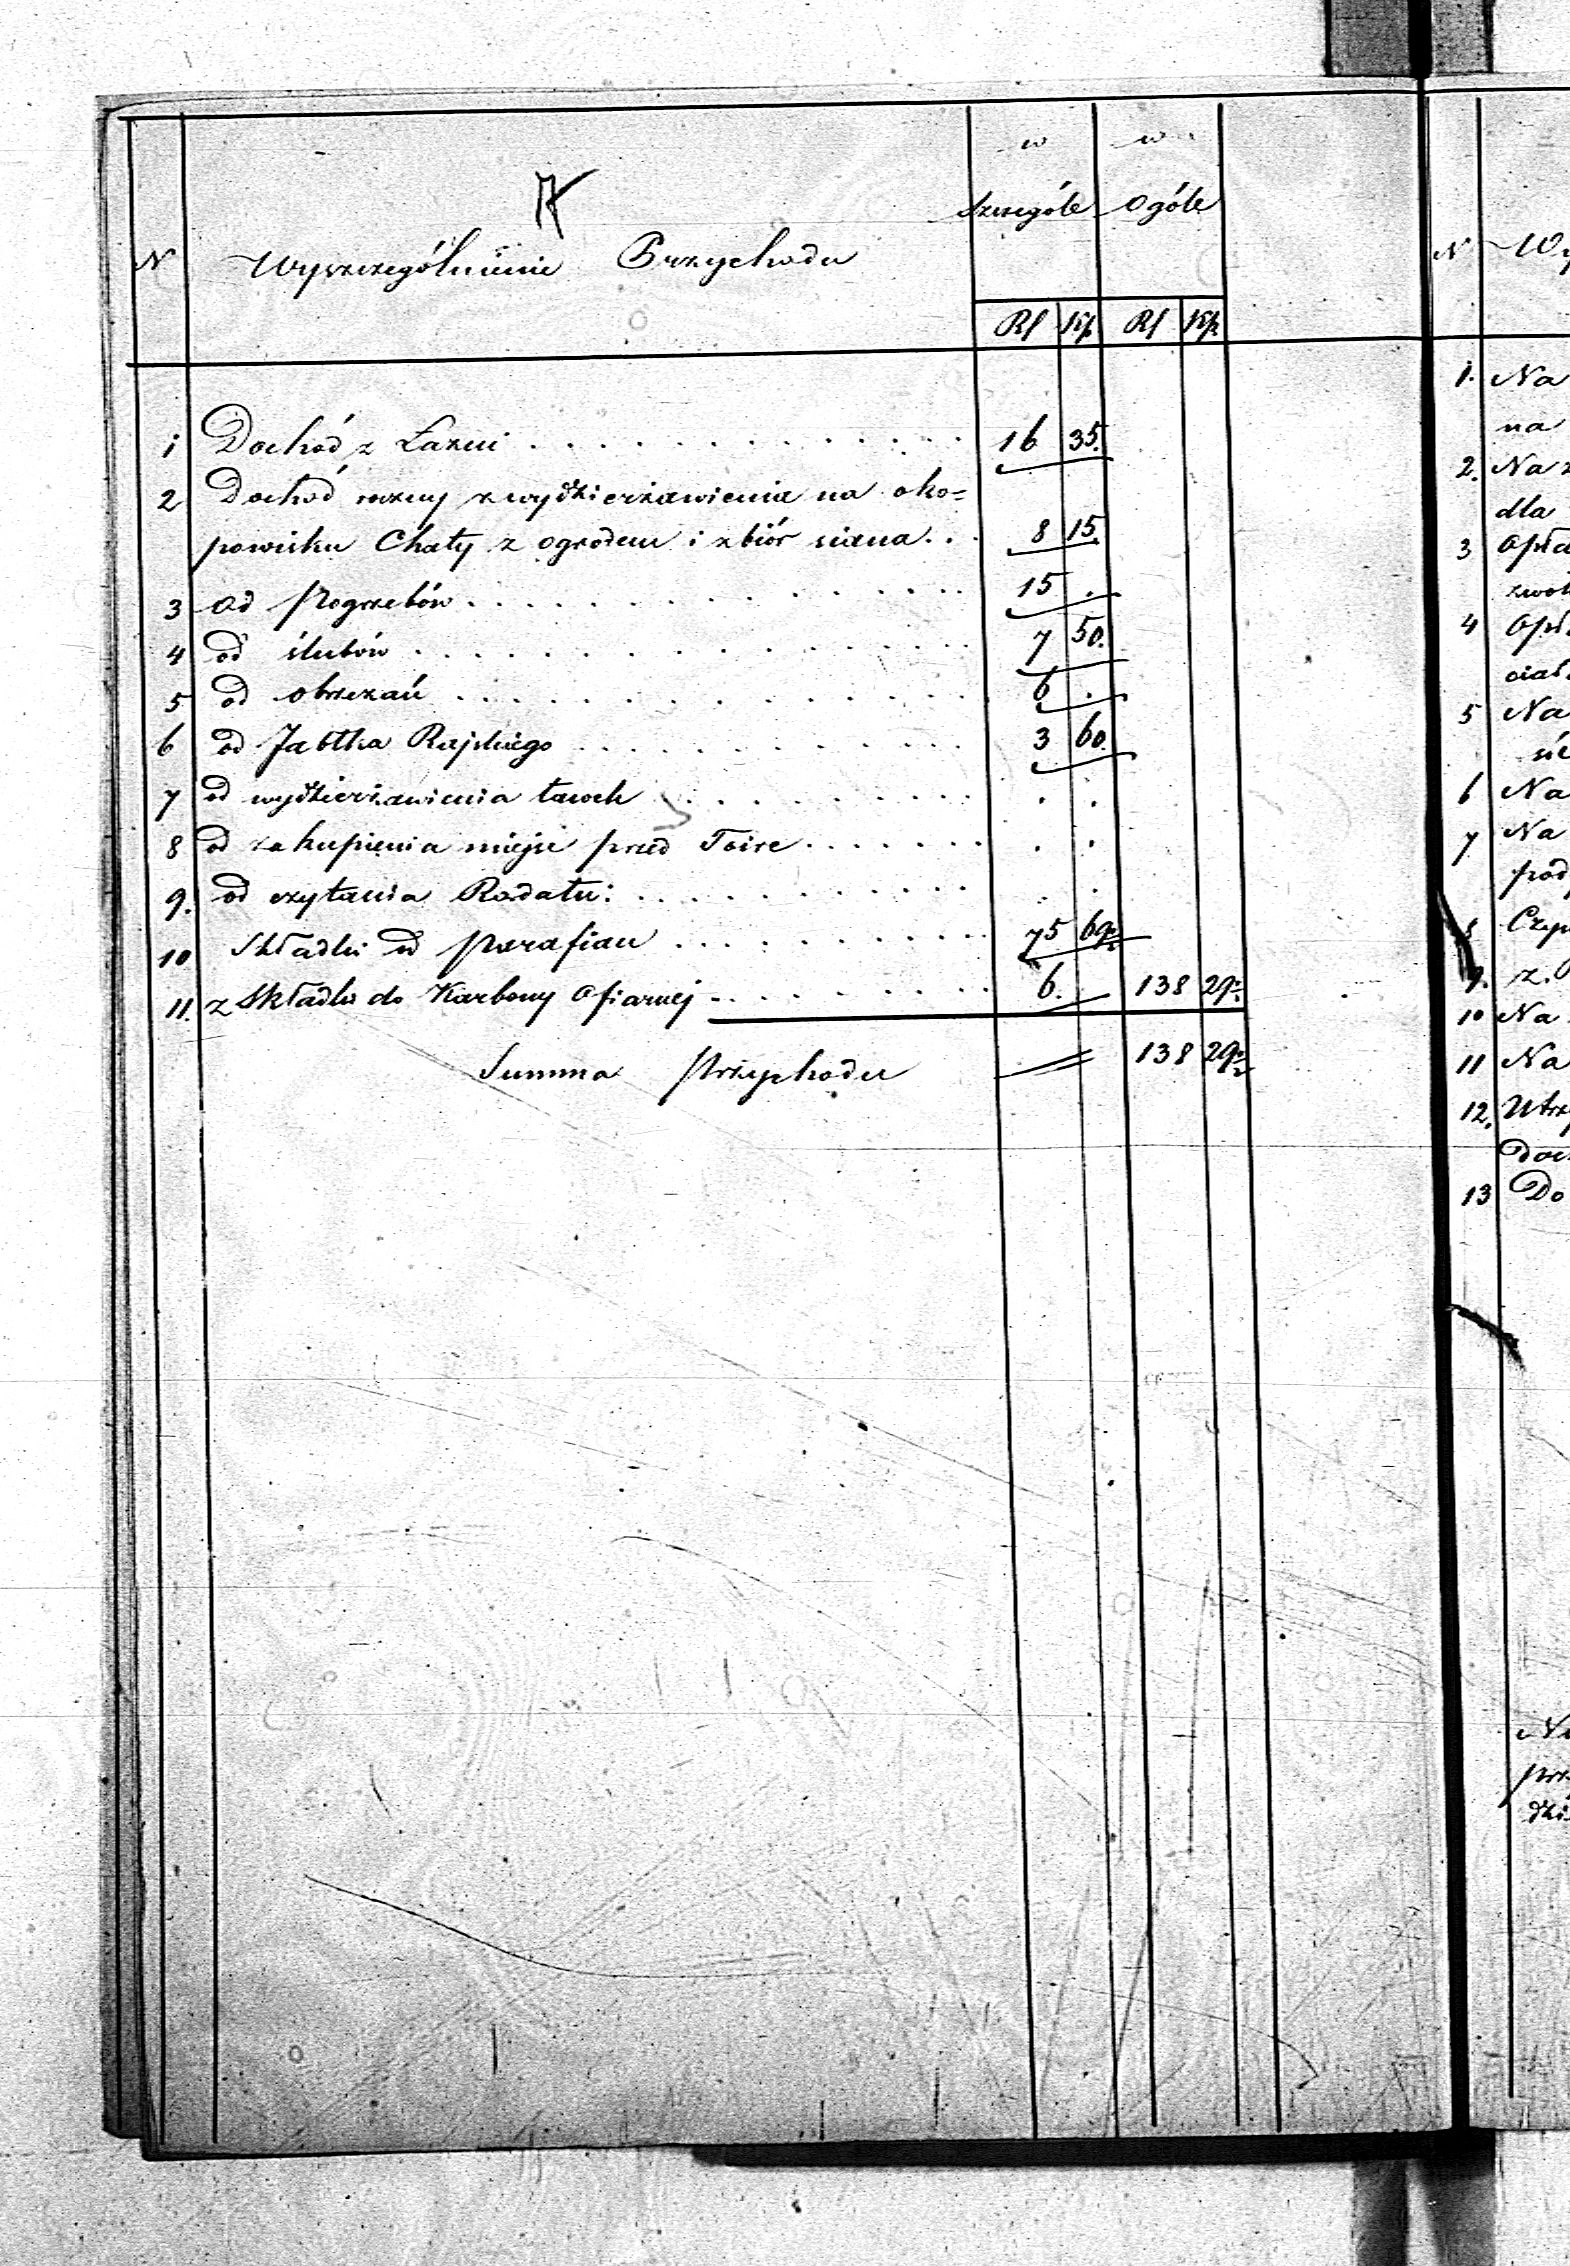 w w
Szczególe Ogóle
N Wyszczególnienie Przychodu
Rs Kp Rs Kp
1 Dochód z Łazni . . . . . . . . . . . . . 16 35.
2 Dochód roczny z wydzierżawienia na oko=
powisku Chaty z ogrodem i zbiór siana. . . 8 15.
3 Od Pogrzebów . . . . . . . . . . . . . . 15 .
4 od ślubów . . . . . . . . . . . . . . . 7 50.
5 od obrzezań . . . . . . . . . . . . . . 6 .
6 od Jabłka Rajskiego . . . . . . . . . . . 3 60.
7 od wydzierżawienia ławek . . . . . . . . . . . .
8 od zakupienia miejsc przed Torę . . . . . . . . .
9. od czytania Rodału: . . . . . . . . . . . .
10 Składki od parafian . . . . . . . . . . 75 69½
11. z Składki do Karbony Ofiarnej . . . . . . . . . 6. . 138 29½
Summa Przychodu 138 29½
N Wy
1. Na
na
2. Na
dla
3 Opła
4 Opł
5 Na
sie
6 Na
7 Na
pod
Czyn
9. z.
10 Na
11 Na
12. Utrz
13 Do